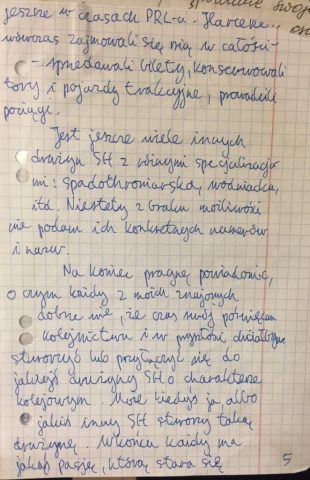 jeszcze w czasach PRL-u - Harcerze
wówczas zajmowali się nią w całości -
- sprzedawali bilety, konserwowali
tory i pojazdy trakcyjne, prowadzili
pociągi.
Jest jeszcze wiele innych
drużyn SH z różnymi specjalizacja-
mi: spadochroniarska, wodniacka,
itd. Niestety z braku możliwości
nie podam ich konkretnych numerów
i nazw.
Na koniec pragnę powiadomić,
o czym każdy z moich znajomych
dobrze wie, że czas swój poświęcam
kolejnictwu i w przyszłości chciałbym
stworzyć lub przyłączyć się do
jakiejś drużyny SH o charakterze
kolejowym. Może kiedyś ja albo
jakiś inny SH stworzy taką
drużynę. W końcu każdy ma
jakąś pasję, którą stara się
5